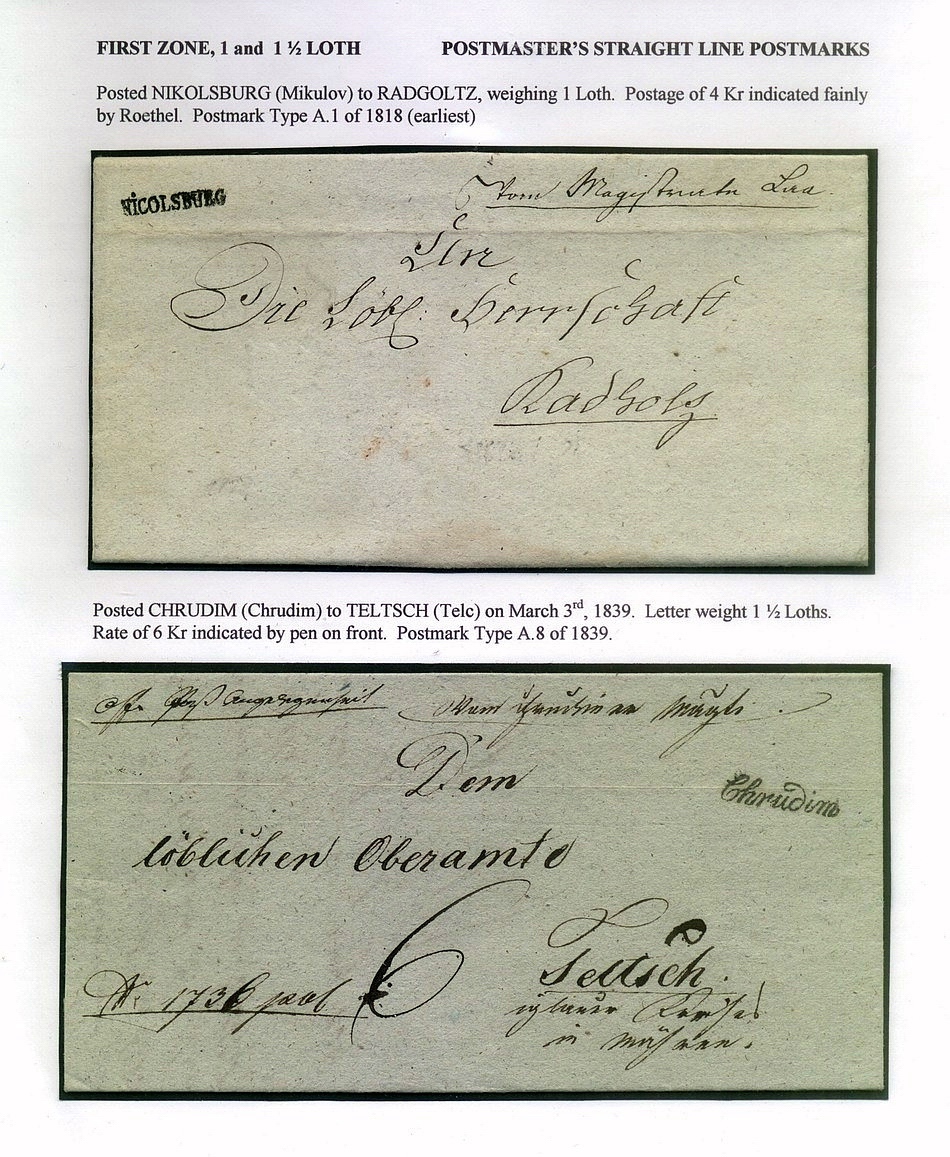 FIRST ZONE, 1 and 1 ½ LOTH POSTMASTER'S STRAIGHT LINE POSTMARKS
Posted NIKOLSBURG (Mikulov) to RADGOLTZ, weighing 1 Loth. Postage of 4 Kr indicated fainly
by Roethel. Postmark Type A.1 of 1818 (earliest)
NICOLSBURG
Vom Magistrate Laa.
An
Die Löbl: Herrschaft
Kadholz
Posted CHRUDIM (Chrudim) to TELTSCH (Telc) on March 3rd, 1839. Letter weight 1 ½ Loths.
Rate of 6 Kr indicated by pen on front. Postmark Type A.8 of 1839.
Vom Chrudimer Magt.
Dem
Chrudim
löblichen Oberamte
6
Teltsch.
Nr. 1736
iglauer Kreises
in Mähren.